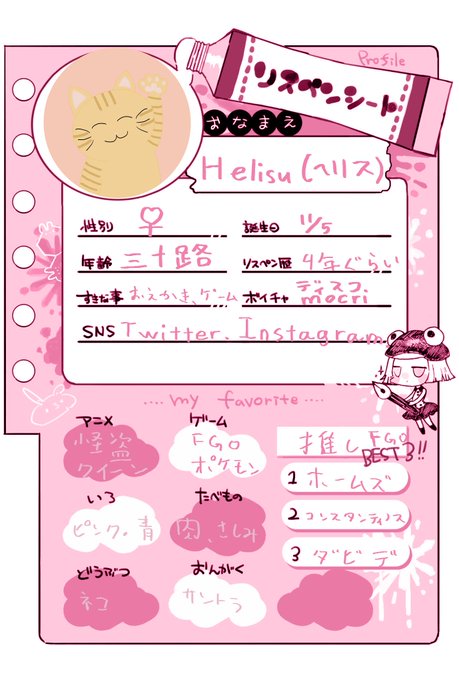 Profile
リスペンシート
おなまえ
Helisu(ヘリス)
性別 ♀ 誕生日 11/5
年齢 三十路 リスペン歴 4年ぐらい
すきな事 おえかき、ゲーム ボイチャ ディスコ、mocri
SNS Twitter、Instagram
....my favorite....
アニメ
怪盗
クイーン
ゲーム
FGO
ポケモン
推しFGO
BEST3!!
1 ホームズ
2 コンスタンティノス
3 ダビデ
いろ
ピンク。青
たべもの
肉、さしみ
どうぶつ
ネコ
おんがく
サントラ